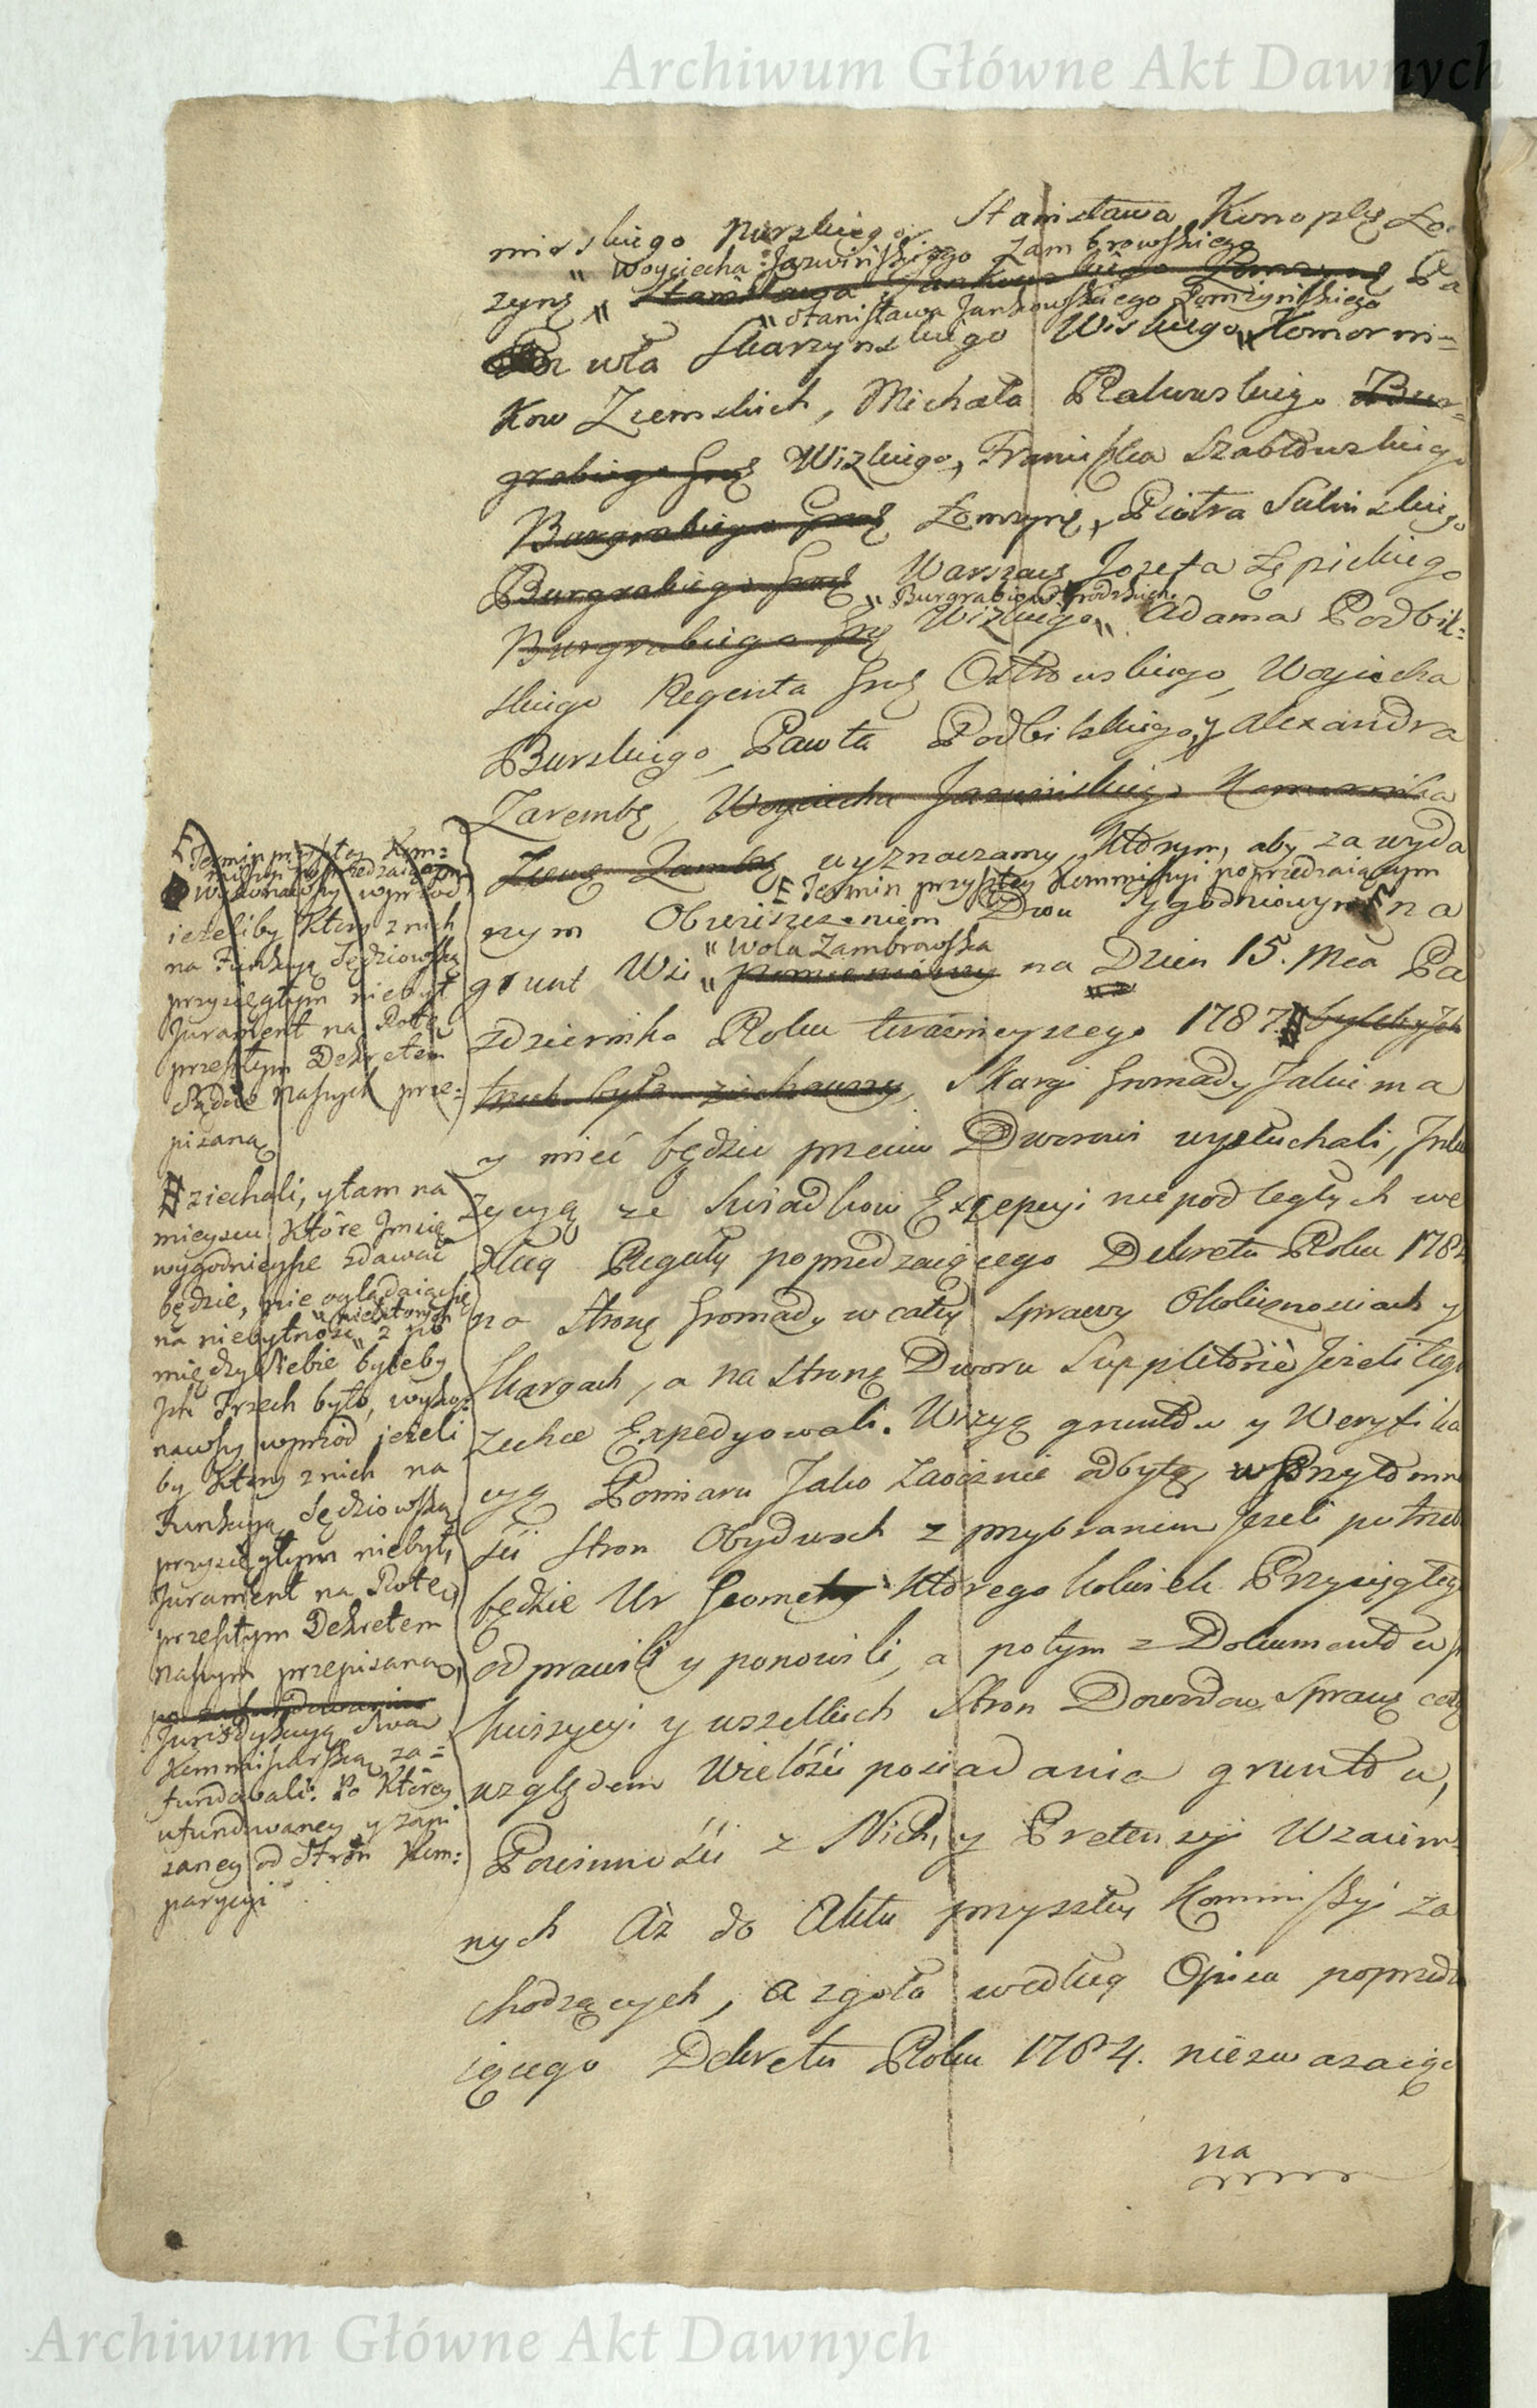 Archiwum Główne Akt Dawnych
mirskiego Nurskiego, Stanisława Konoplę Ło
" Woyciecha Jazwińskiego Zambrowskiego
zyнę " Stanisława Jankowskiego Łomzynę Pa
" Stanisława Jankowskiego Łomżyńskiego
wła Skarzynskiego Wiskiego " Komorni=
kow Ziemskich, Michała Rakowskiego Bur=
grabiego Grod Wizkiego, Franciszka Szabłowskiego
Burgrabiego Grod Łomzynę, Piotra Sulinskiego
Burgrabiego Grod Warszaw Jozefa Łępickiego
" Burgrabiow Grodzkich
Burgrabiego Grod Wizkiego " Adama Podbil=
skiego Regenta Grod Ostrowskiego, Woyciecha
Burskiego, Pawła Podbilskiego, y Alexandra
Zarembę, Woyciecha Jazwinskiego Komornika
Ziems Zambr wyznaczamy, Którym, aby za wyda
Termin przyszłey Kommissyi poprzedzaiącym
nym Obwieszczeniem Dwu Tygodniowym na
" Wola Zambrowska
grunt Wsi " pomienioney na Dzien 15. Mca Pa
zdziernika Roku teraznieyszego 1787. byleby Ich
trzech było ziechawszy, Skargi Gromady Jakie ma
y mieć będzie przeciw Dworowi wysłuchali, Inkw
zycyą ze Swiadkow Excepcyi niepodległych we
dług Reguły poprzedzaiącego Dekretu Roku 1784
na Stronę Gromady w całey sprawy Okolicznosciach y
Skargach, a na Stronę Dworu Suppletoriè Jezeli tego
zechce Expedyowali. Wizyą gruntow y Weryfika
cyą Pomiaru Jako zaocznie odbytą, w Przytomno
sci Stron Obydwoch z przybraniem Jezeli potrzeb
będzie Ur Geometry Którego kolwiek Przysięgłego
odprawili y ponowili, a potym z Dokumentow,
kwizycyi y wszelkich Stron Dowodow Sprawę całą
względem Wielości posiadania gruntow,
Powinności z Nich, y Pretensyi Wzaiem
nych Aż do Aktu przyszłey Kommissyi za
chodzących, a zgoła według Opisu poprzedza
iącego Dekretu Roku 1784. niezwazaiąc
na
Termin przyszłey Kom=
missyi poprzedzaiącym
wykonawszy wprzod
ieżeliby Który z nich
na Funkcyą Sędziowską
przysięgłym niebył
Jurament na Rotę
przeszłym Dekretem
Sądów Naszych prze=
pisaną
ziechali, y tam na
mieyscu Które Im się
wygodnieysze zdawać
będzie, nie oglądaiąc się
" niektorych
na niebytność " z po
między Siebie byleby
Ich Trzech było, wyko=
nawszy wprzod jeżeli
by Który z nich na
Funkcyą Sędziowską
przysięgłym niebył,
Jurament na Rotę,
przeszłym Dekretem
naszym przepisaną,
Jurisdykcyą swą
Kommissarską za=
fundowali. Po Którey
ufundowaney y zapi
saney od Stron Kom=
parycyi
Archiwum Główne Akt Dawnych